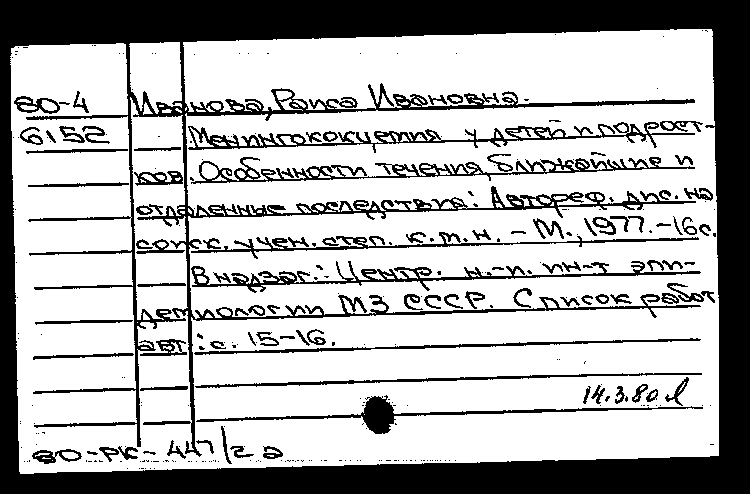 80-4 Иванова, Раиса Ивановна.
6152 Менингококцемия у детей и подрост-
ков. Особенности течения, ближайшие и
отдаленные последствия: Автореф. дис. на
соиск. учен. степ. к.м.н. – М., 1977. – 16 с.
В надзаг.: Центр. н.-и. ин-т эпи-
демиологии МЗ СССР. Список работ
авт.: с. 15-16.
14.3.80
80-РК-447/2а